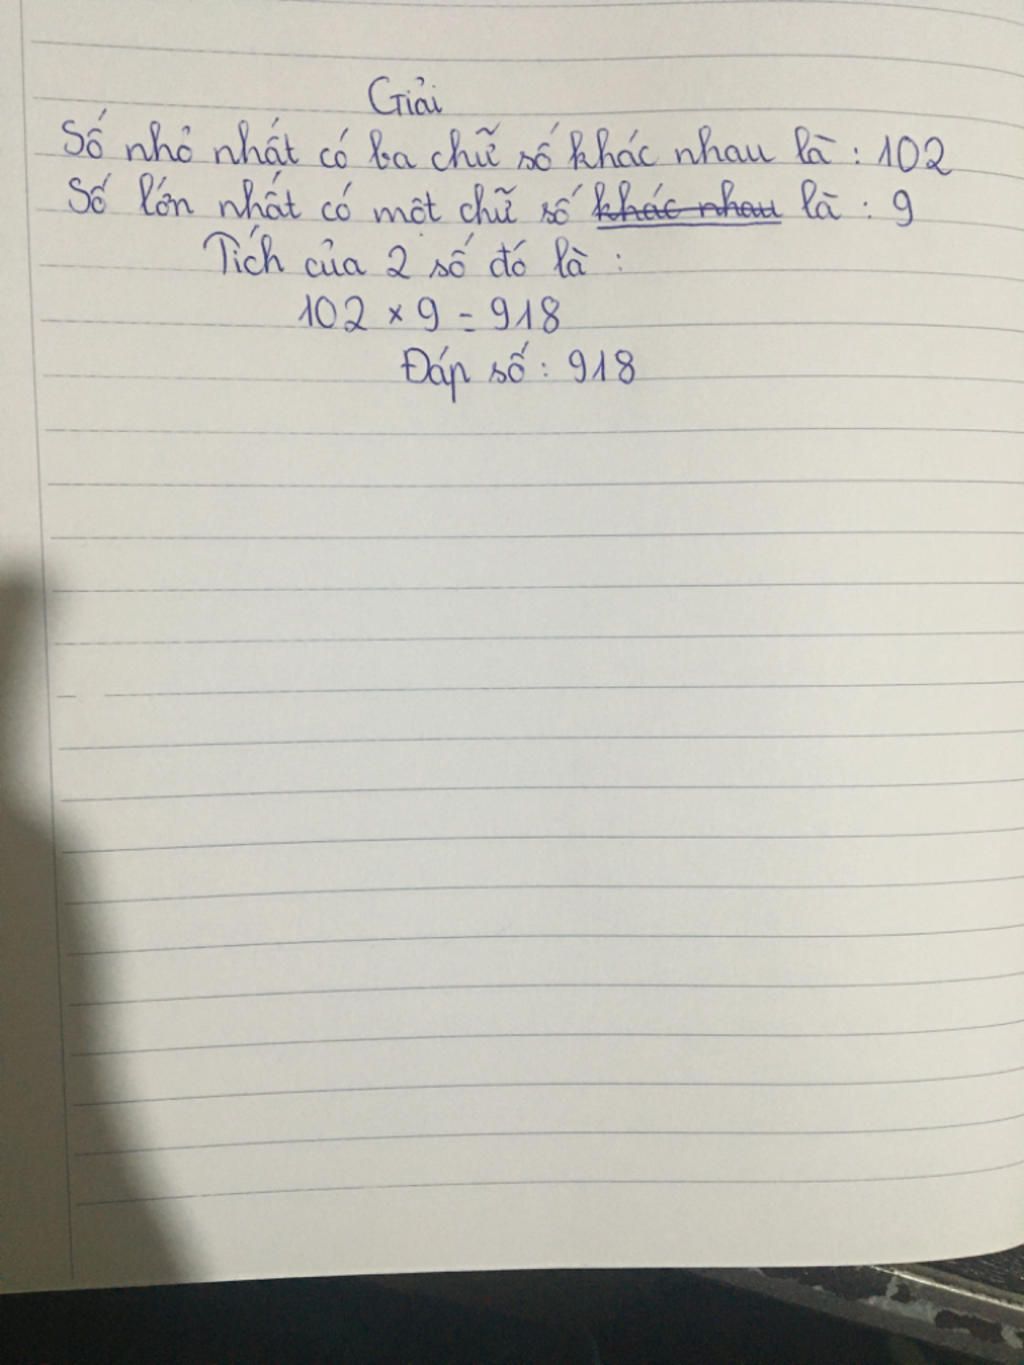 Giải
Số nhỏ nhất có ba chữ số khác nhau là : 102
Số lớn nhất có một chữ số khác nhau là : 9
Tích của 2 số đó là :
102 × 9 = 918
Đáp số : 918